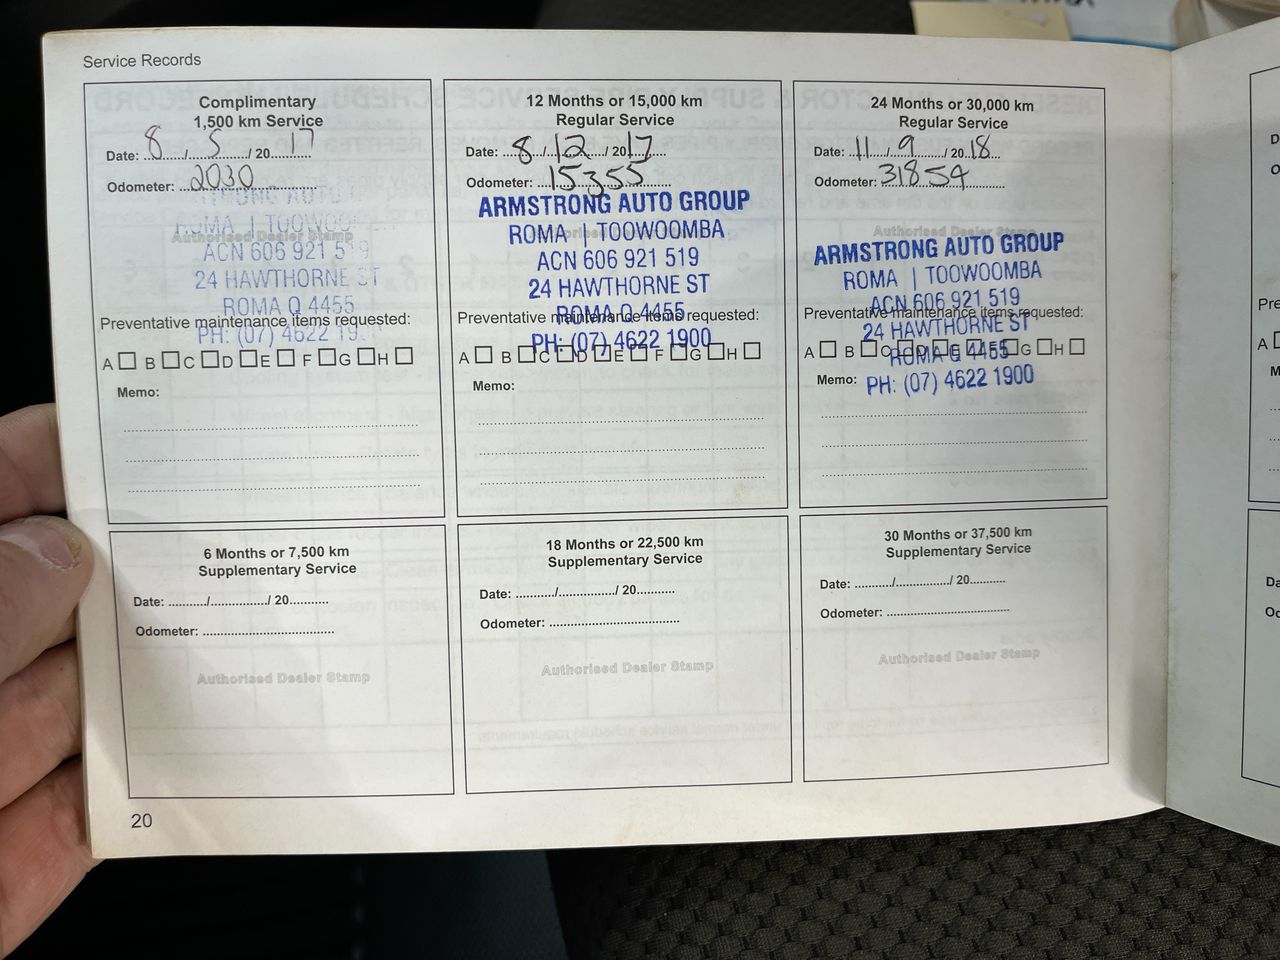 Service Records
Complimentary
1,500 km Service
Date: 8 / 5 / 20 17
Odometer: 2030
Authorised Dealer Stamp
ROMA | TOOWOO
ACN 606 921 519
24 HAWTHORNE ST
ROMA Q 4455
PH: (07) 4622 19
Preventative maintenance items requested:
A B C D E F G H
Memo:
12 Months or 15,000 km
Regular Service
Date: 8 / 12 / 20 17
Odometer: 15355
ARMSTRONG AUTO GROUP
ROMA | TOOWOOMBA
ACN 606 921 519
24 HAWTHORNE ST
ROMA Q 4455
PH: (07) 4622 1900
Preventative maintenance items requested:
A B C D E F G H
Memo:
24 Months or 30,000 km
Regular Service
Date: 11 / 9 / 20 18
Odometer: 31854
Authorised Dealer Stamp
ARMSTRONG AUTO GROUP
ROMA | TOOWOOMBA
ACN 606 921 519
24 HAWTHORNE ST
ROMA Q 4455
PH: (07) 4622 1900
Preventative maintenance items requested:
A B C D E F G H
Memo:
6 Months or 7,500 km
Supplementary Service
Date: / / 20
Odometer:
Authorised Dealer Stamp
18 Months or 22,500 km
Supplementary Service
Date: / / 20
Odometer:
Authorised Dealer Stamp
30 Months or 37,500 km
Supplementary Service
Date: / / 20
Odometer:
Authorised Dealer Stamp
20